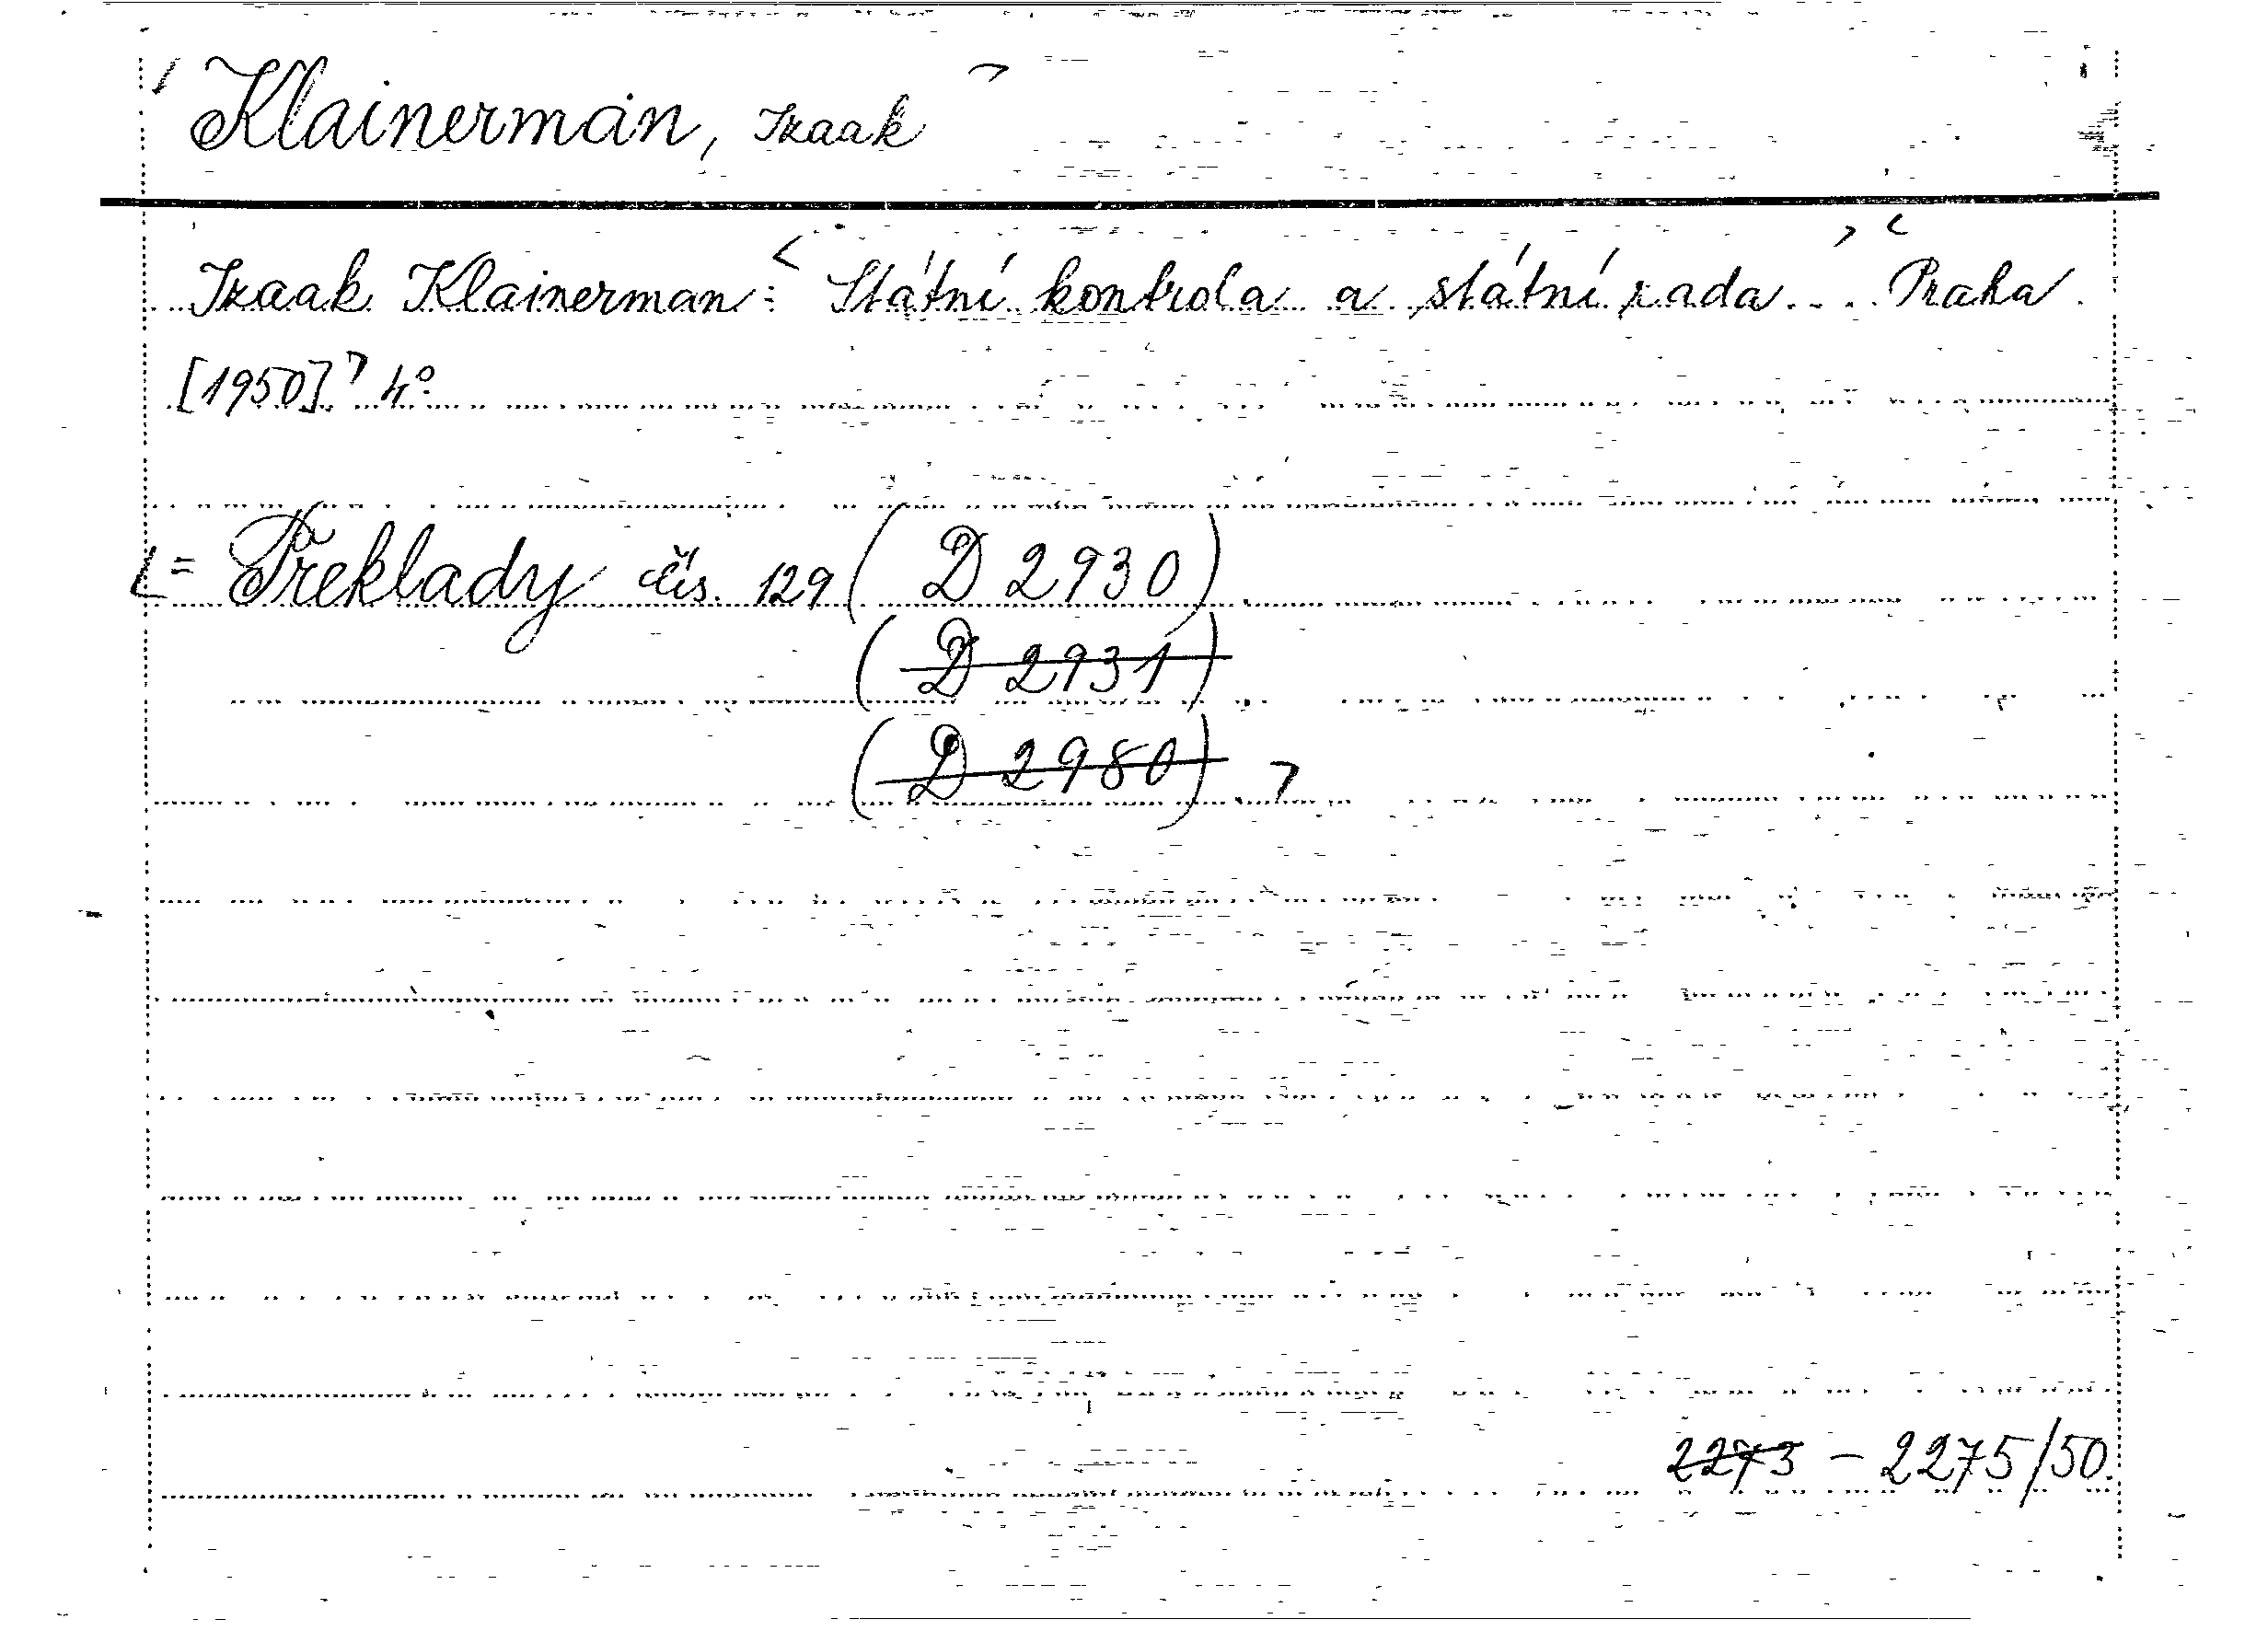 Klainerman, Izaak
Izaak Klainerman: Státní kontrola a státní rada... Praha
[1950] 4°
= Překlady čís. 129 (D 2930)
(D 2931)
(D 2980)
2273 - 2275/50.